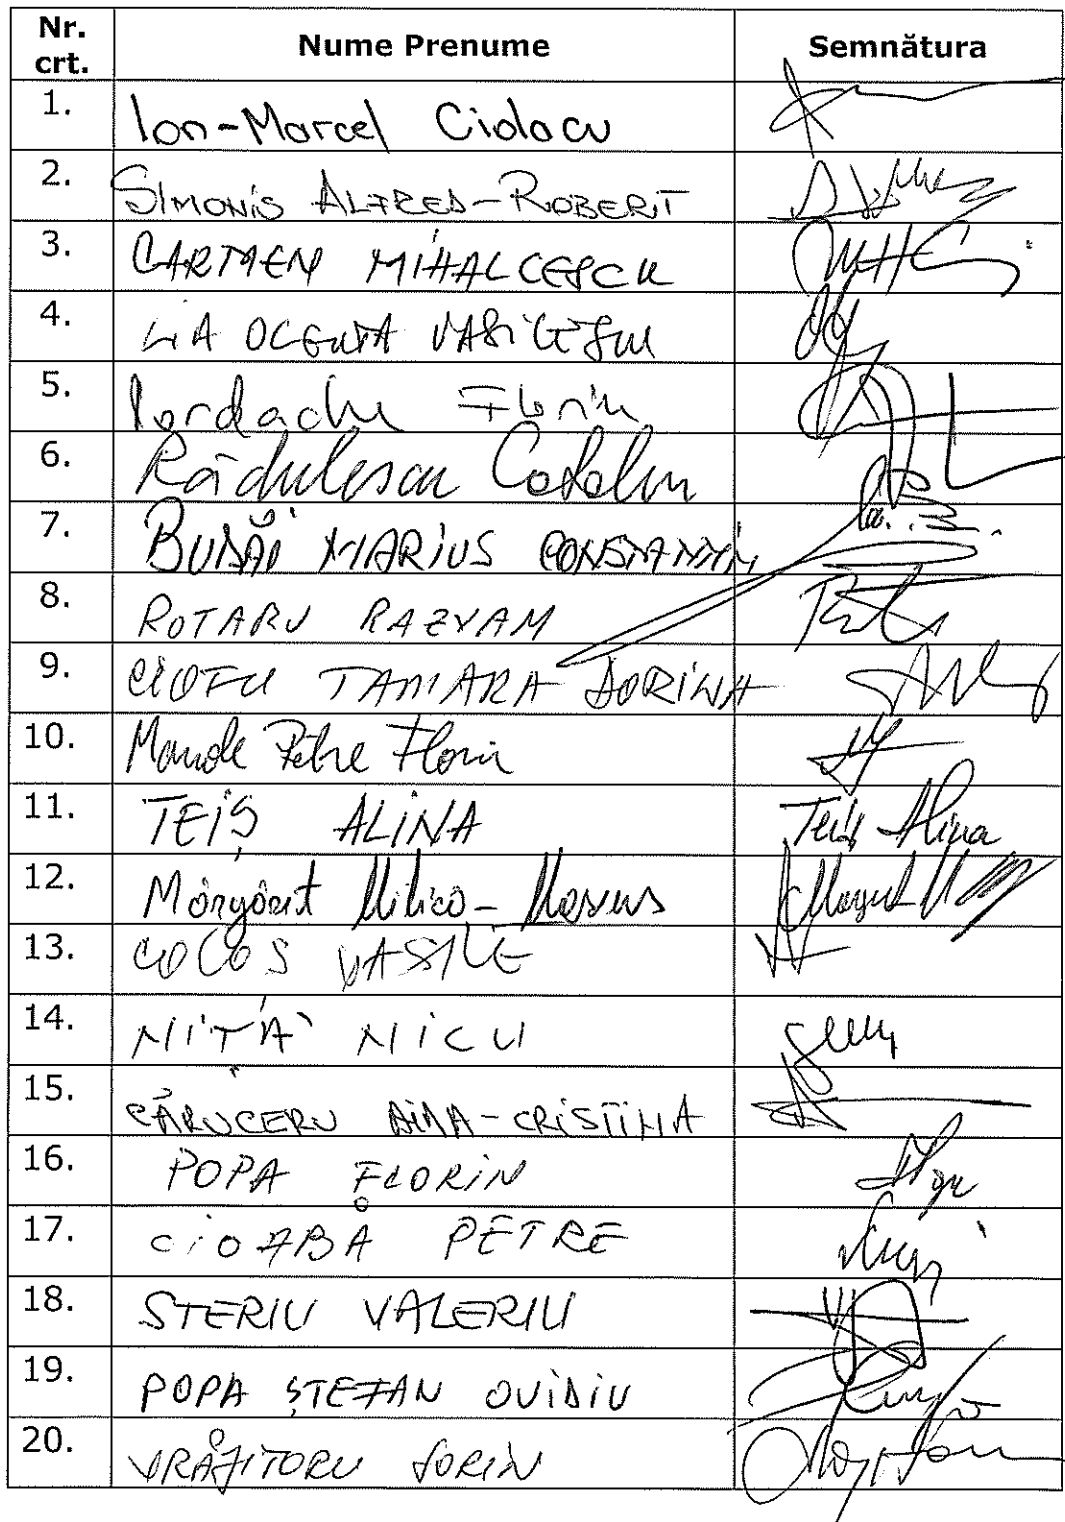 Nr. crt. Nume Prenume Semnătura
1. Ion-Marcel Ciolacu
2. SIMONIS ALFRED-ROBERT
3. CARMEN MIHALCESCU
4. LIA OLGUTA VASILESCU
5. Iordache Florin
6. Rădulescu Catalin
7. BUDĂI MARIUS CONSTANTIN
8. ROTARU RAZVAN
9. CIOFU TAMARA DORINA
10. Manole Petre Florin
11. TEIȘ ALINA Teiș Alina
12. Mărgărit Mitică-Marius
13. COCOS VASILE
14. NIȚĂ NICU
15. CĂRUCERU AIDA-CRISTINA
16. POPA FLORIN
17. CIOABA PETRE
18. STERIU VALERIU
19. POPA ȘTEFAN OVIDIU
20. VRĂJITORU SORIN